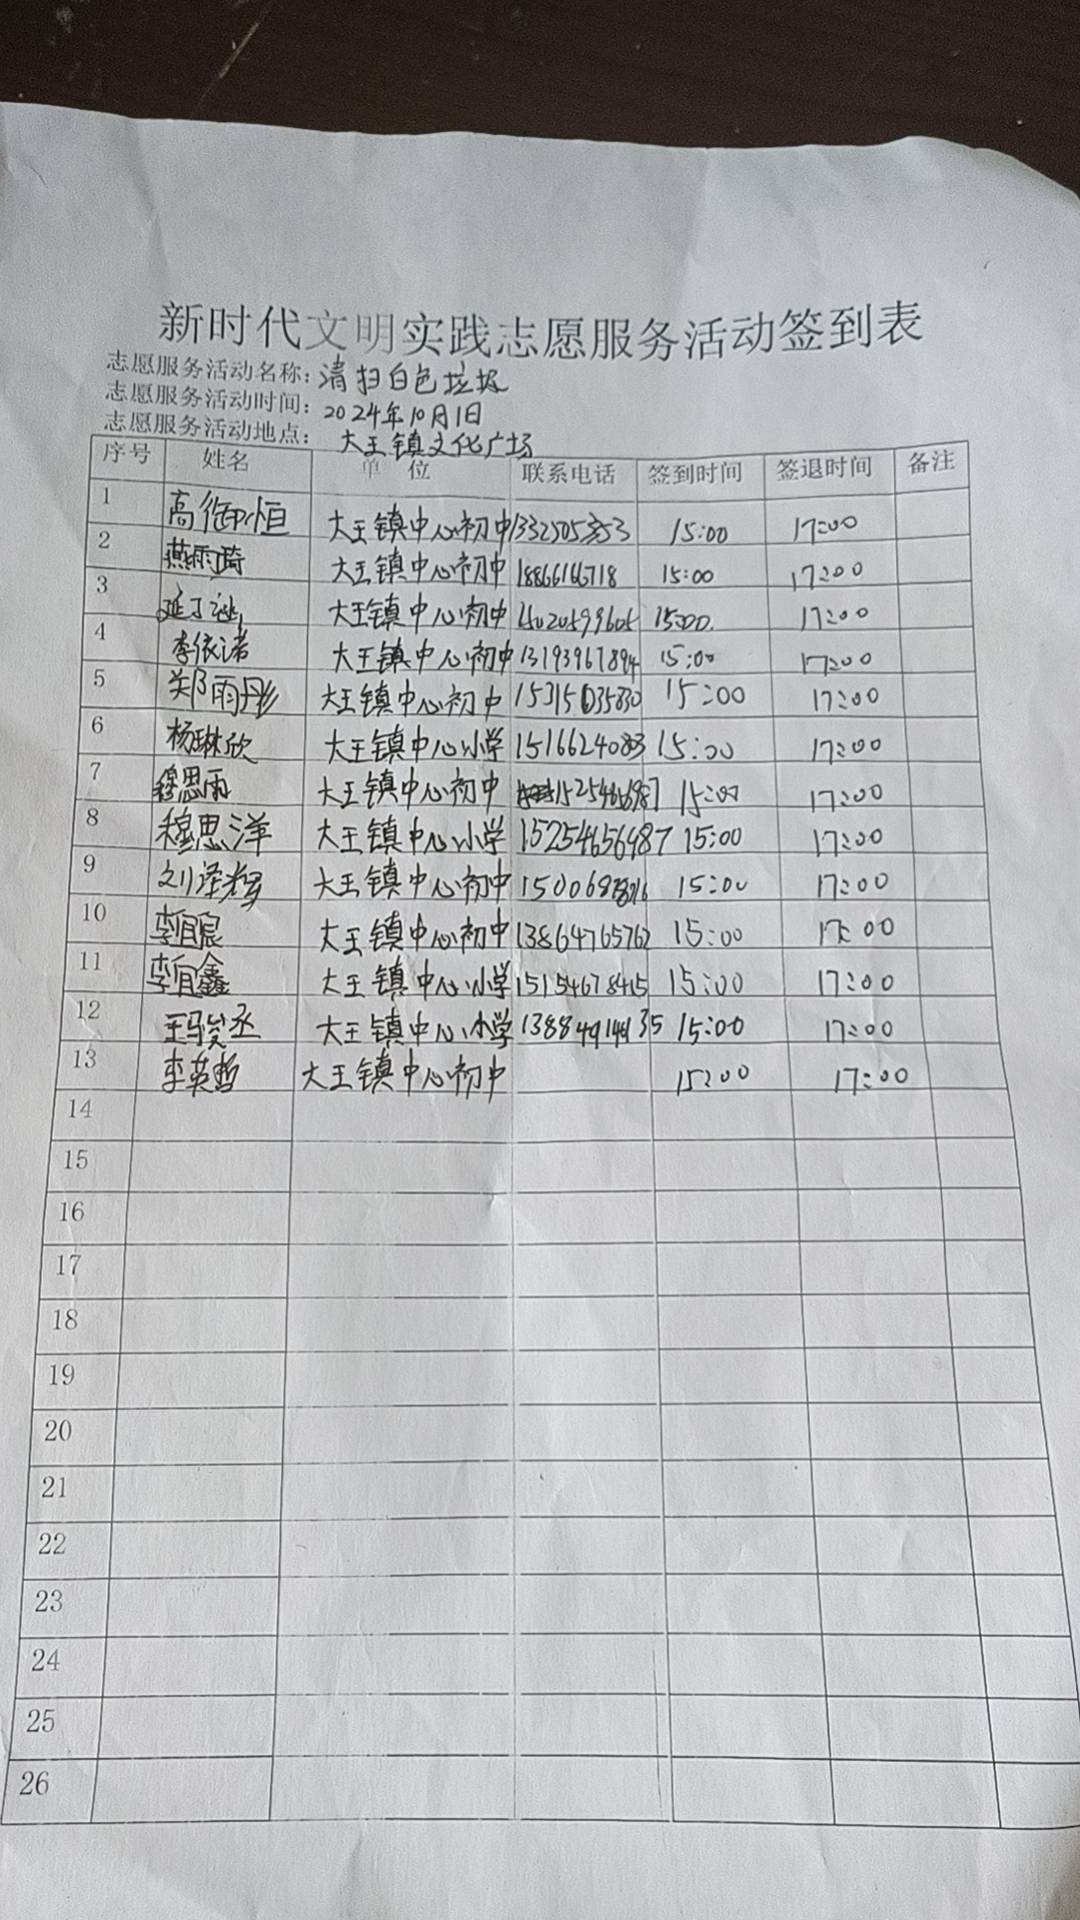 新时代文明实践志愿服务活动签到表
志愿服务活动名称：清扫白色垃圾
志愿服务活动时间：2024年10月1日
志愿服务活动地点：大王镇文化广场
序号 姓名 单位 联系电话 签到时间 签退时间 备注
1 高御恒 大王镇中心初中 15:00 17:00
2 燕雨琦 大王镇中心初中 18866166718 15:00 17:00
3 大王镇中心初中 15:00 17:00
4 李依诺 大王镇中心初中 13193967894 15:00 17:00
5 郑雨彤 大王镇中心初中 15315035830 15:00 17:00
6 杨琳欣 大王镇中心小学 15:00 17:00
7 穆思雨 大王镇中心初中 15:00 17:00
8 穆思洋 大王镇中心小学 15254656987 15:00 17:00
9 刘泽辉 大王镇中心初中 15:00 17:00
10 李宜宸 大王镇中心初中 13864765762 15:00 17:00
11 李宜鑫 大王镇中心小学 15154678415 15:00 17:00
12 王骏丞 大王镇中心小学 15:00 17:00
13 李英哲 大王镇中心初中 15:00 17:00
14
15
16
17
18
19
20
21
22
23
24
25
26